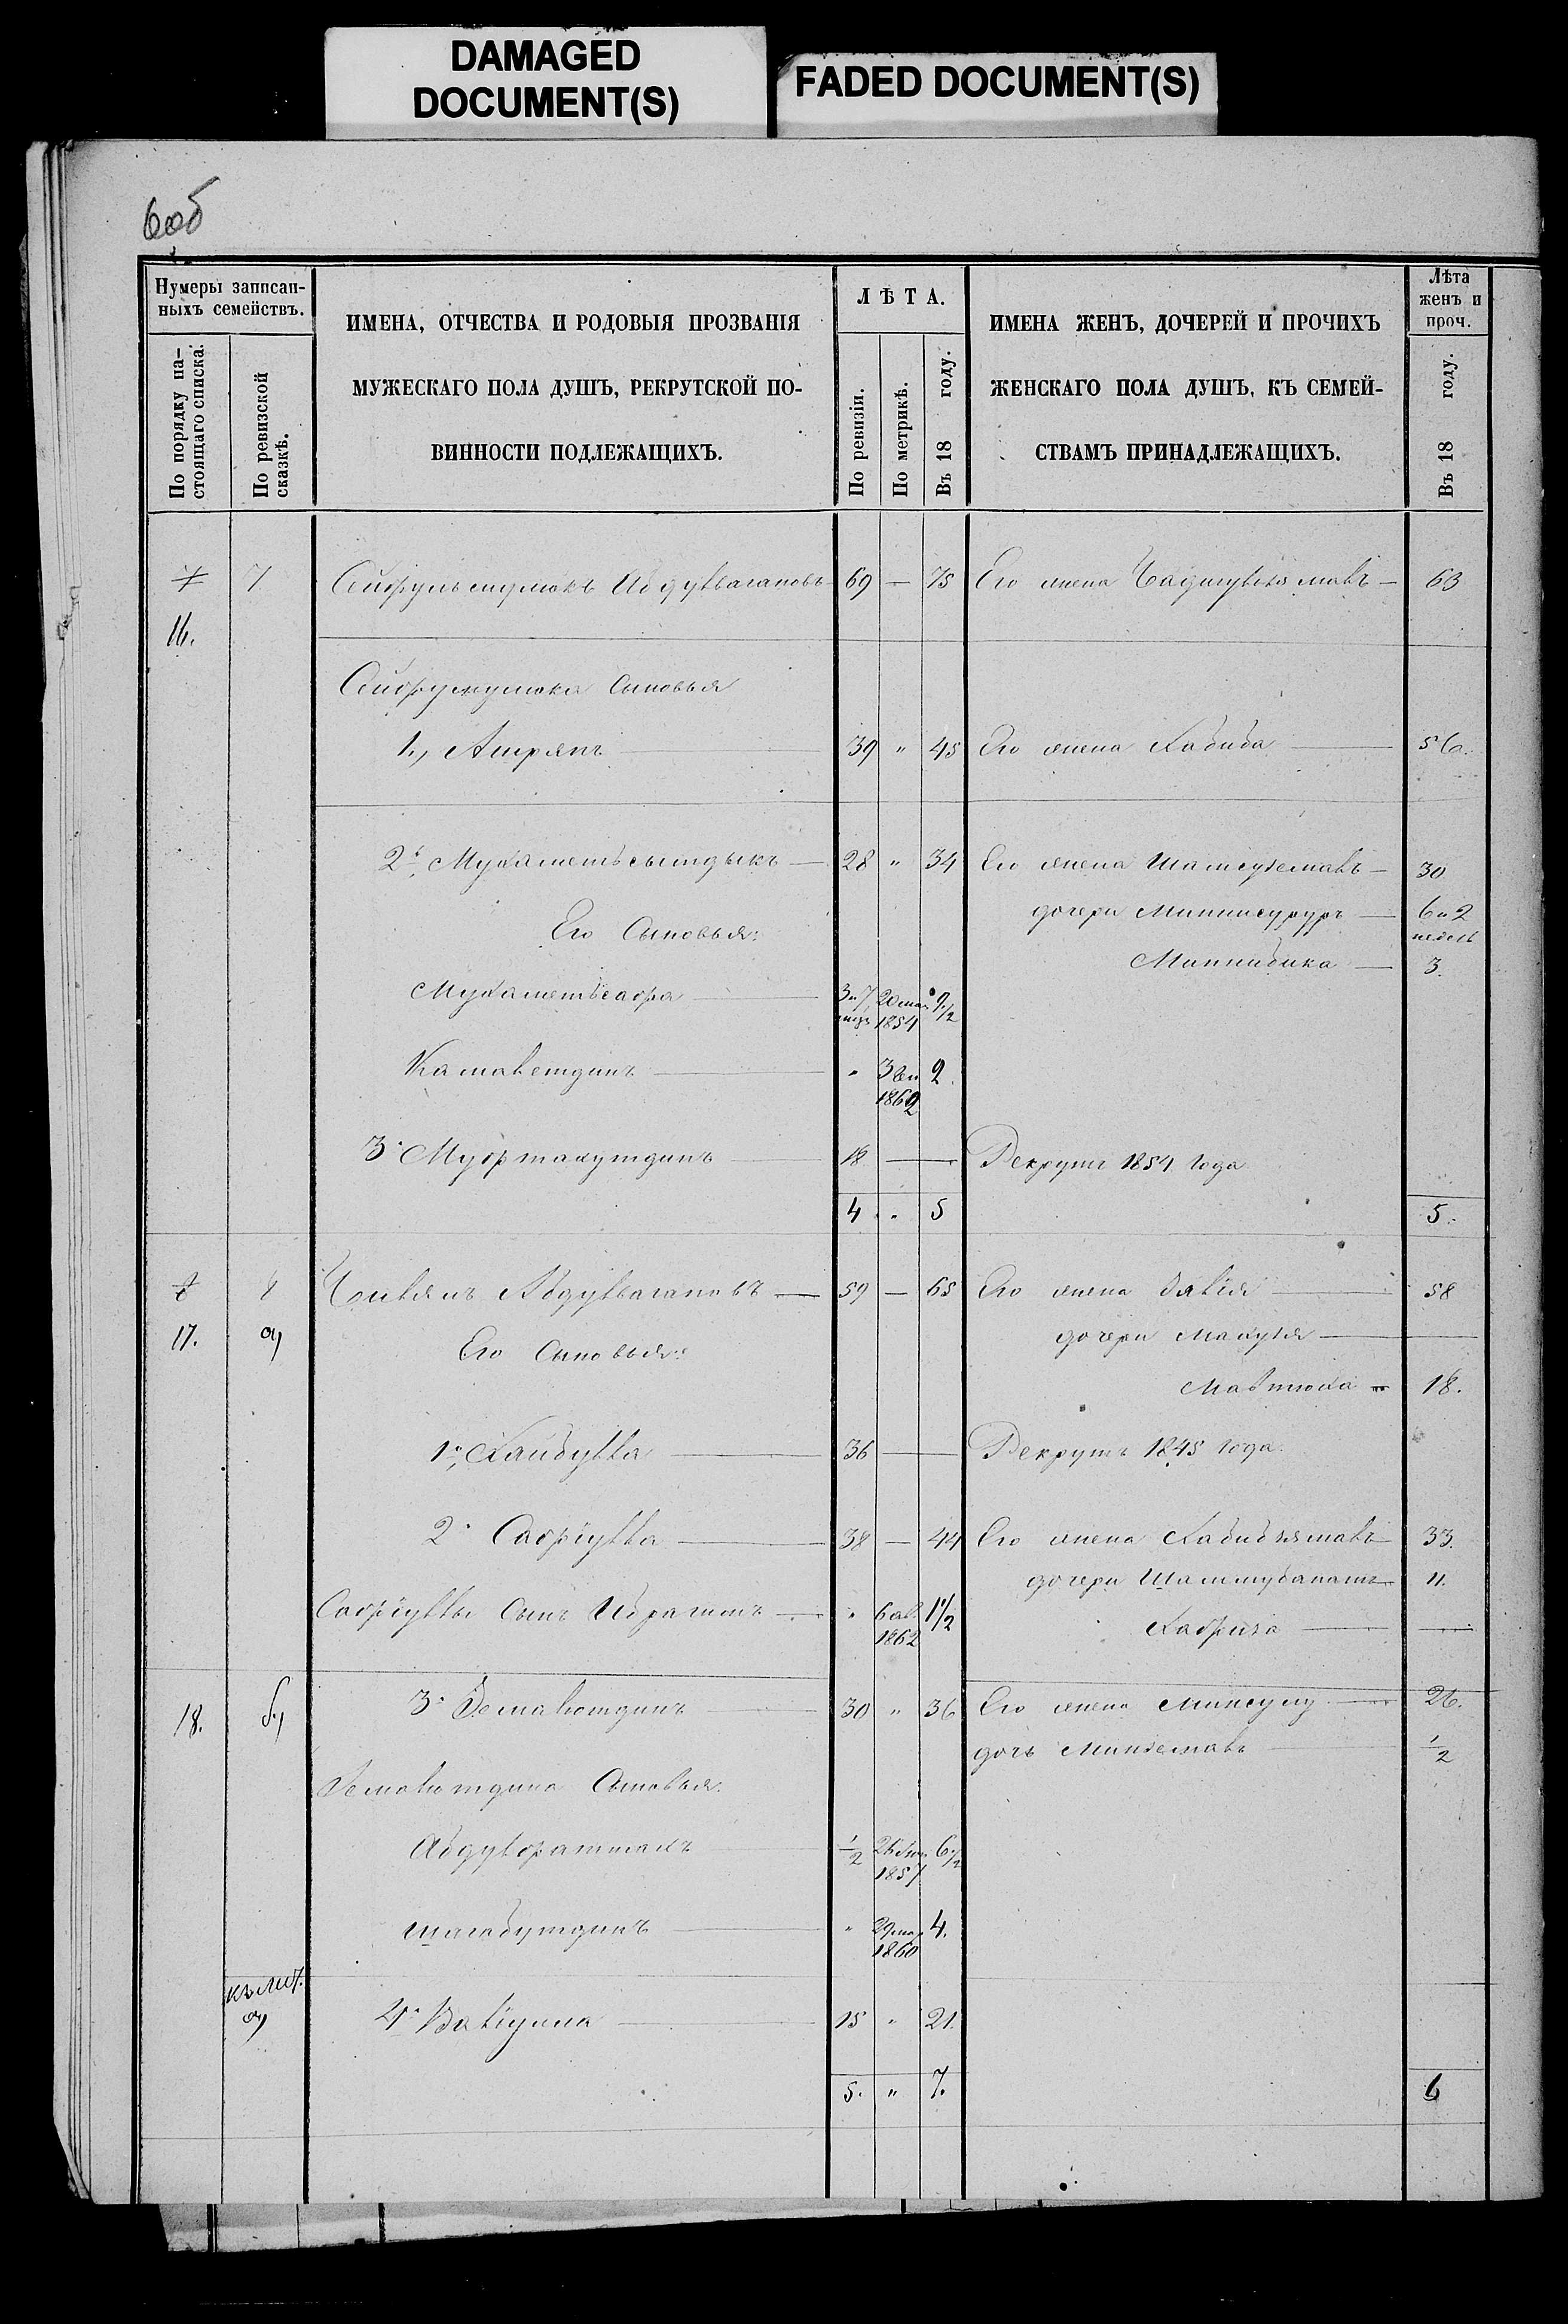 DAMAGED
DOCUMENT(S)
FADED DOCUMENT(S)
6об
Нумеры записан-
ныхъ семействъ.
По порядку на-
стоящаго списка.
По ревизской
сказкѣ.
ИМЕНА, ОТЧЕСТВА И РОДОВЫЯ ПРОЗВАНІЯ
МУЖЕСКАГО ПОЛА ДУШЪ, РЕКРУТСКОЙ ПО-
ВИННОСТИ ПОДЛЕЖАЩИХЪ.
ЛѢТА.
По ревизіи.
По метрикѣ.
Въ 18 году.
ИМЕНА ЖЕНЪ, ДОЧЕРЕЙ И ПРОЧИХЪ
ЖЕНСКАГО ПОЛА ДУШЪ, КЪ СЕМЕЙ-
СТВАМЪ ПРИНАДЛЕЖАЩИХЪ.
Лѣта
женъ и
проч.
Въ 18 году.
7 7 Сейфульмулюкъ Абдулвагаповъ 69 — 75 Его жена 63
16.
Сейфумулюка Сыновья
1, Ашряпъ 39 " 45 Его жена Хабиба 56.
2, Мухаметьсытдыкъ — 28 " 34 Его жена Шамсуземалъ — 30
дочери — 6 и 2
недель
Его Сыновья:
Миннибика — 3.
Мухаметьсафа 3 и 7 мцъ 20 мая 1854 9 1/2
Камалетдинъ " 3 1862 2.
3 Муфтахутдинъ 18 — — Рекрутъ 1854 года
4 " 5 5.
8 8 Абдулвагаповъ — 59 — 65 Его жена Зялія 58
17. а) Его Сыновья: дочери —
Мавлюха 18.
1, Хайбулла 36 — — Рекрутъ 1845 года.
2 Сафіулла 38 — 44 Его жена Хабибзямалъ 33.
дочери Шамшубанатъ 11.
Сафіуллы Сынъ Ибрагимъ — " 6 1862 1 1/2
Хафиза —
18. б) 3 Земалетдинъ 30 " 36 Его жена Минсулу 26.
дочь Минземалъ 1/2
Земалетдина Сыновья:
1/2 1857 6 1/2
Шагабутдинъ " 29 мар 1860 4.
къ лит.
а) 4 Валіулла 15 " 21.
5. " 7. 6